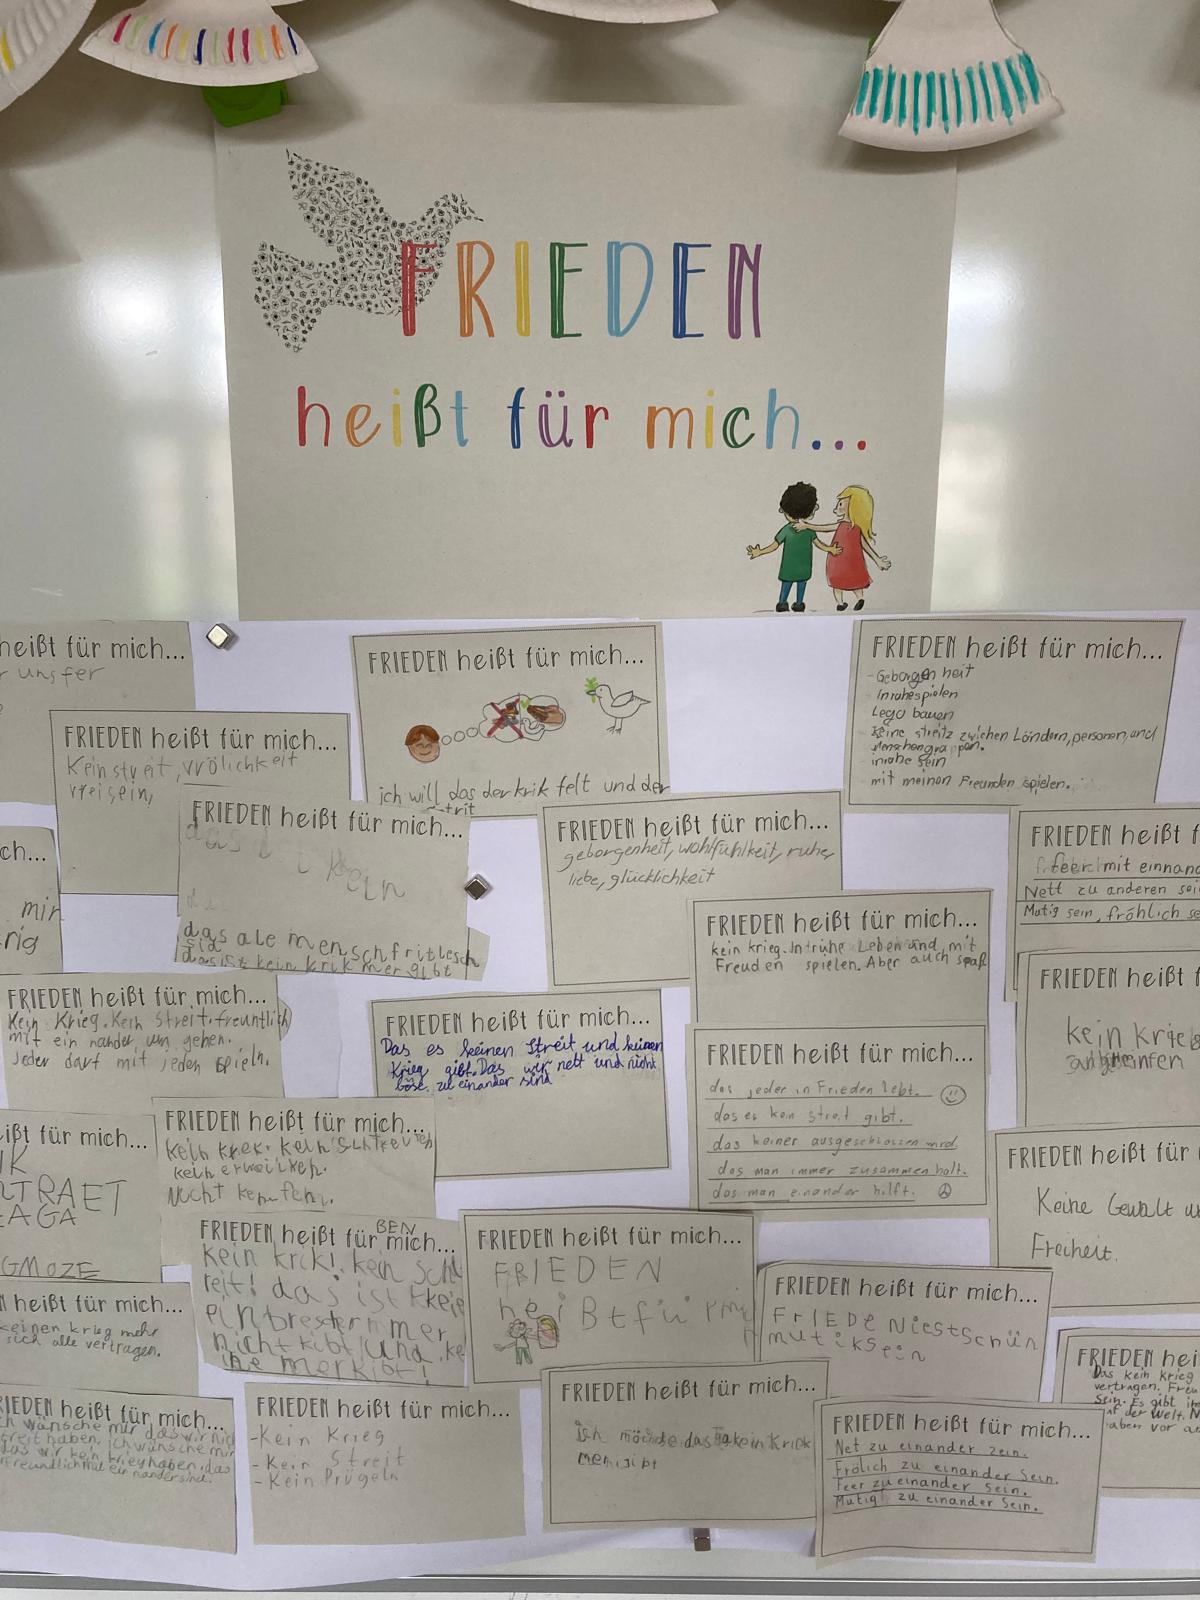 FRIEDEN
heißt für mich...
heißt für mich...
unsfer
FRIEDEN heißt für mich...
ich will das der krik felt und der
FRIEDEN heißt für mich...
- Geborgenheit
- Inruhespielen
Lego bauen
- Keine streitz zwichen Ländern, personen, und
Menschengruppen.
inruhe sein
- mit meinen Freunden spielen.
FRIEDEN heißt für mich...
Kein streit, vrölichkeit
vreisein,
FRIEDEN heißt für mich...
das
kein
das ale menschfritlesch
sid
dasist kein krik mer gibt
FRIEDEN heißt für mich...
geborgenheit, wohlfühlkeit, ruhe,
liebe, glücklichkeit
FRIEDEN heißt f
feer mit einnand
Nett zu anderen sei
Mutig sein, fröhlich se
ch...
mir
rig
FRIEDEN heißt für mich...
kein krieg. In ruhe Leben und mit
Freuden spielen. Aber auch spaß
FRIEDEN heißt für
kein krieg
FRIEDEN heißt für mich...
Kein Krieg. Kein Streit. freuntlich
mit ein nander um gehen.
Jeder darf mit jeden spieln.
FRIEDEN heißt für mich...
Das es keinen Streit und keinen
Krieg gibt. Das wir nett und nicht
böse zu einander sind
FRIEDEN heißt für mich...
das jeder in Frieden lebt.
das es kein streit gibt.
das keiner ausgeschlossen wird.
das man immer zusammen halt.
das man einander hilft.
ißt für mich...
TRAET
AGA
GMOZE
FRIEDEN heißt für mich...
kein krek. kein
kein
Nocht
FRIEDEN heißt für
Keine Gewalt u
Freiheit.
FRIEDEN heißt für mich...
BEN
kein krik! kein sch
reit! das ist
ein
nicht kibt! Und ke
ine mer kibt!
FRIEDEN heißt für mich...
FRIEDEN
heißt für mi
FRIEDEN heißt für mich...
FRIEDE
mutiksein
heißt für mich...
keinen krieg mehr
sich alle vertragen.
FRIEDEN hei
Das kein krieg
vertragen. Freu
sein. Es gibt im
auf der Welt. N
aben vor an
EDEN heißt für mich...
ch wünsche mir das wir nich
streit haben, ich wünsche mir
das wir kein krieg haben, das
Freundlich mit ein nander sind.
FRIEDEN heißt für mich...
- Kein Krieg
- Kein Streit
- Kein Prügeln
FRIEDEN heißt für mich...
Ich möchde das kein Kriek
mer gibt
FRIEDEN heißt für mich...
Net zu einander zein.
Frölich zu einander Sein.
Feer zu einander Sein.
Mutig zu einander Sein.